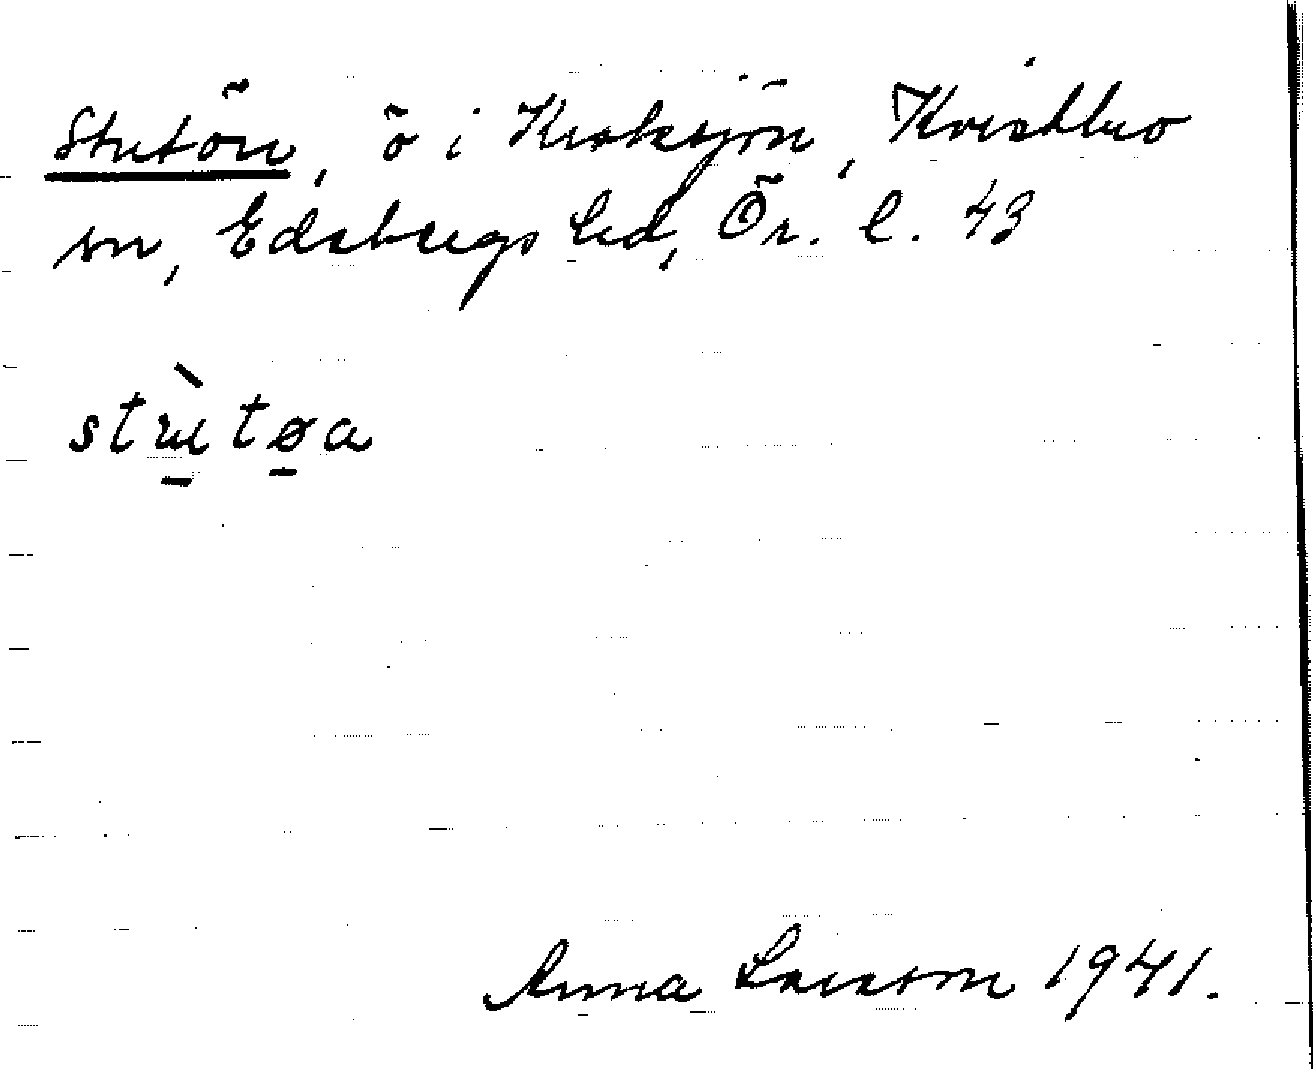 Strutön, ö i Kroksjön, Kvistbro
sn, Edsbergs hd, Ör. l. 43
strùtøa
Anna Larsson 1941.